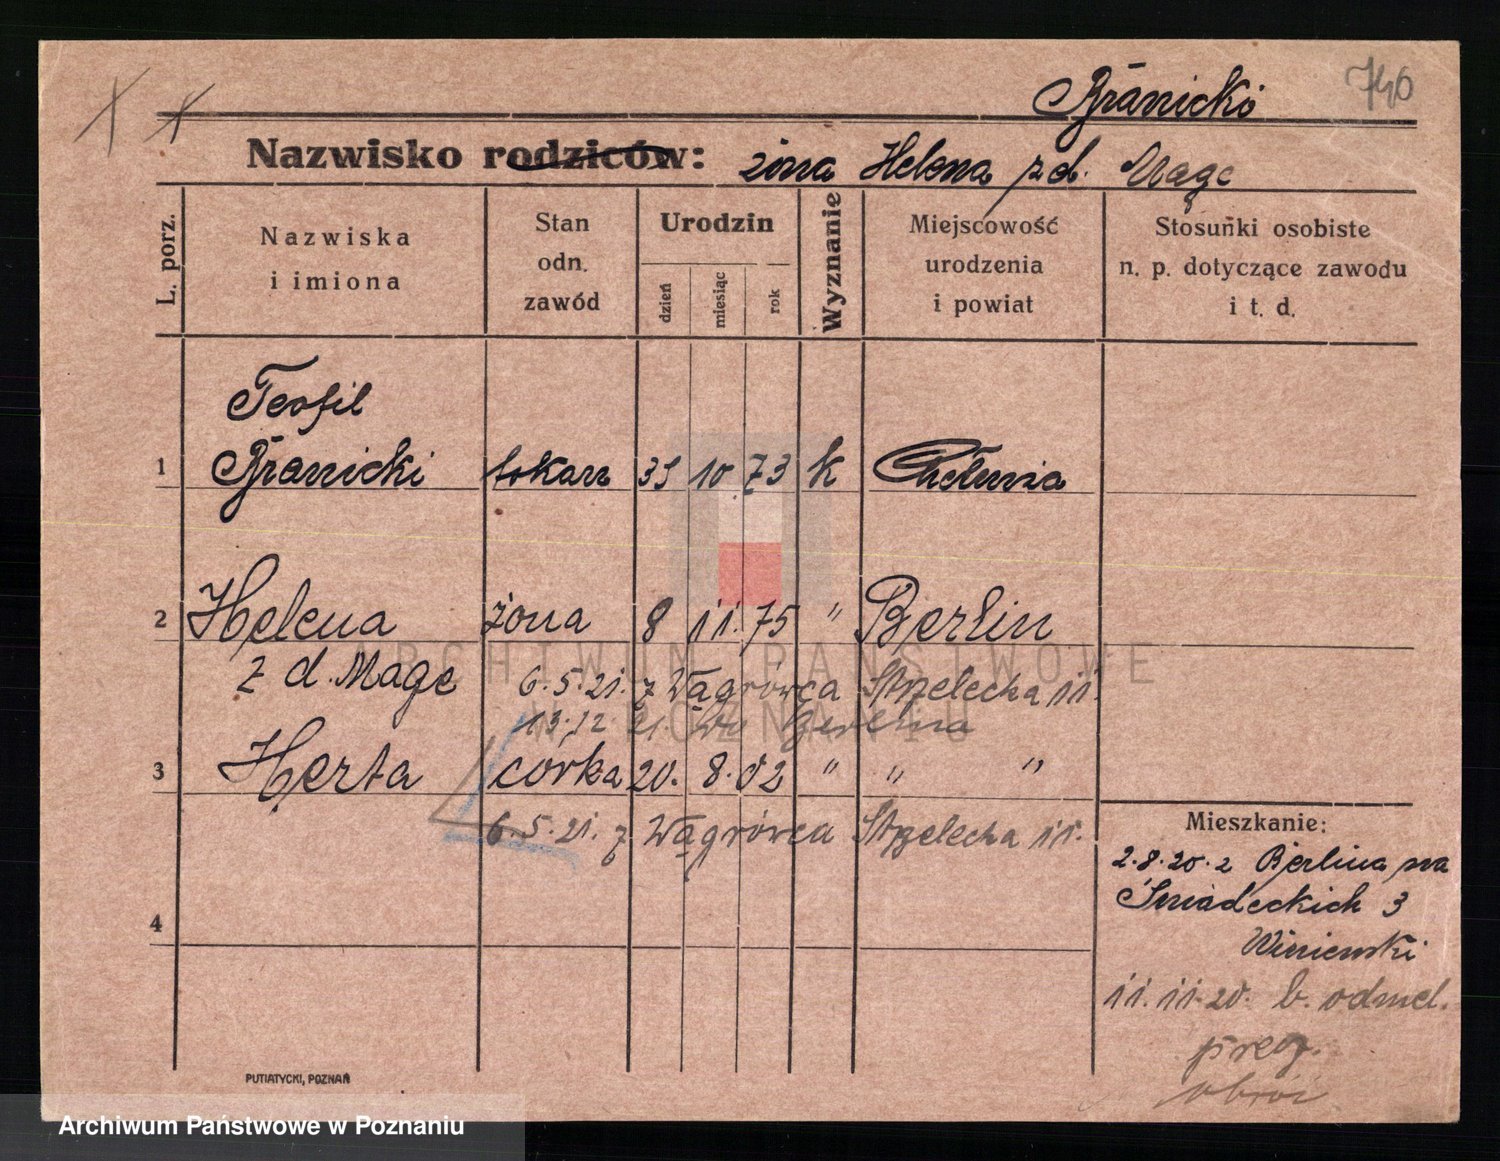 740
Branicki
Nazwisko rodziców: żona Helena z d. Mage
L. porz.
Nazwiska
i imiona
Stan
odn.
zawód
Urodzin
dzień
miesiąc
rok
Wyznanie
Miejscowość
urodzenia
i powiat
Stosunki osobiste
n. p. dotyczące zawodu
i t. d.
Teofil
1 Branicki tokarz 31 10 73 k
2 Helena żona 8 11. 75 " Berlin
z d. Mage 6.5.21. z Wągrówca Strzelecka 11.
13.12 21. do
3 Herta córka 20. 8. 02 " " "
6.5.21. z Wągrówca Strzelecka 11.
4
Mieszkanie:
2.8.20. z Berlina na
Śniadeckich 3
Winiewski
11.11.20. b. odmel.
obróć
PUTIATYCKI, POZNAŃ
ARCHIWUM PAŃSTWOWE
W POZNANIU
Archiwum Państwowe w Poznaniu